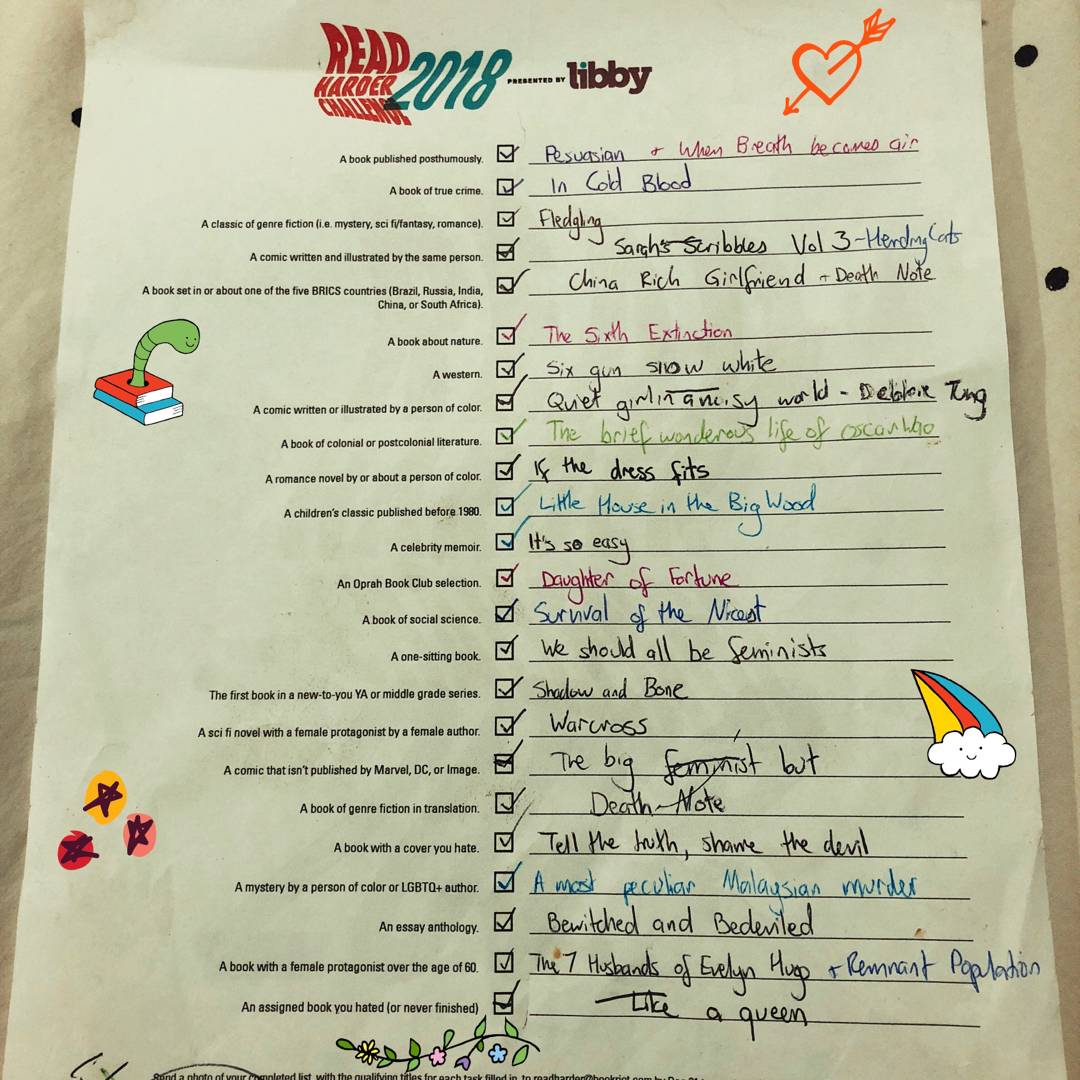 READ HARDER CHALLENGE 2018 PRESENTED BY libby
A book published posthumously. Pesuasian + When Breath becomes air
A book of true crime. In Cold Blood
A classic of genre fiction (i.e. mystery, sci fi/fantasy, romance). Fledgling
A comic written and illustrated by the same person. Sarah's Scribbles Vol 3 - Herding Cats
A book set in or about one of the five BRICS countries (Brazil, Russia, India, China Rich Girlfriend + Death Note
China, or South Africa).
A book about nature. The Sixth Extinction
A western. Six gun snow white
A comic written or illustrated by a person of color. Quiet girl in a noisy world - Debbie Tung
A book of colonial or postcolonial literature. The brief wonderous life of oscar Wao
A romance novel by or about a person of color. If the dress fits
A children's classic published before 1980. Little House in the Big Wood
A celebrity memoir. It's so easy
An Oprah Book Club selection. Daughter of Fortune
A book of social science. Survival of the Nicest
A one-sitting book. We should all be feminists
The first book in a new-to-you YA or middle grade series. Shadow and Bone
A sci fi novel with a female protagonist by a female author. Warcross
A comic that isn't published by Marvel, DC, or Image. The big feminist but
A book of genre fiction in translation. Death Note
A book with a cover you hate. Tell the truth, shame the devil
A mystery by a person of color or LGBTQ+ author. A most peculiar Malaysian murder
An essay anthology. Bewitched and Bedeviled
A book with a female protagonist over the age of 60. The 7 Husbands of Evelyn Hugo + Remnant Population
An assigned book you hated (or never finished) Like a queen
Send a photo of your completed list, with the qualifying titles for each task filled in, to readharder@bookriot.com by Dec